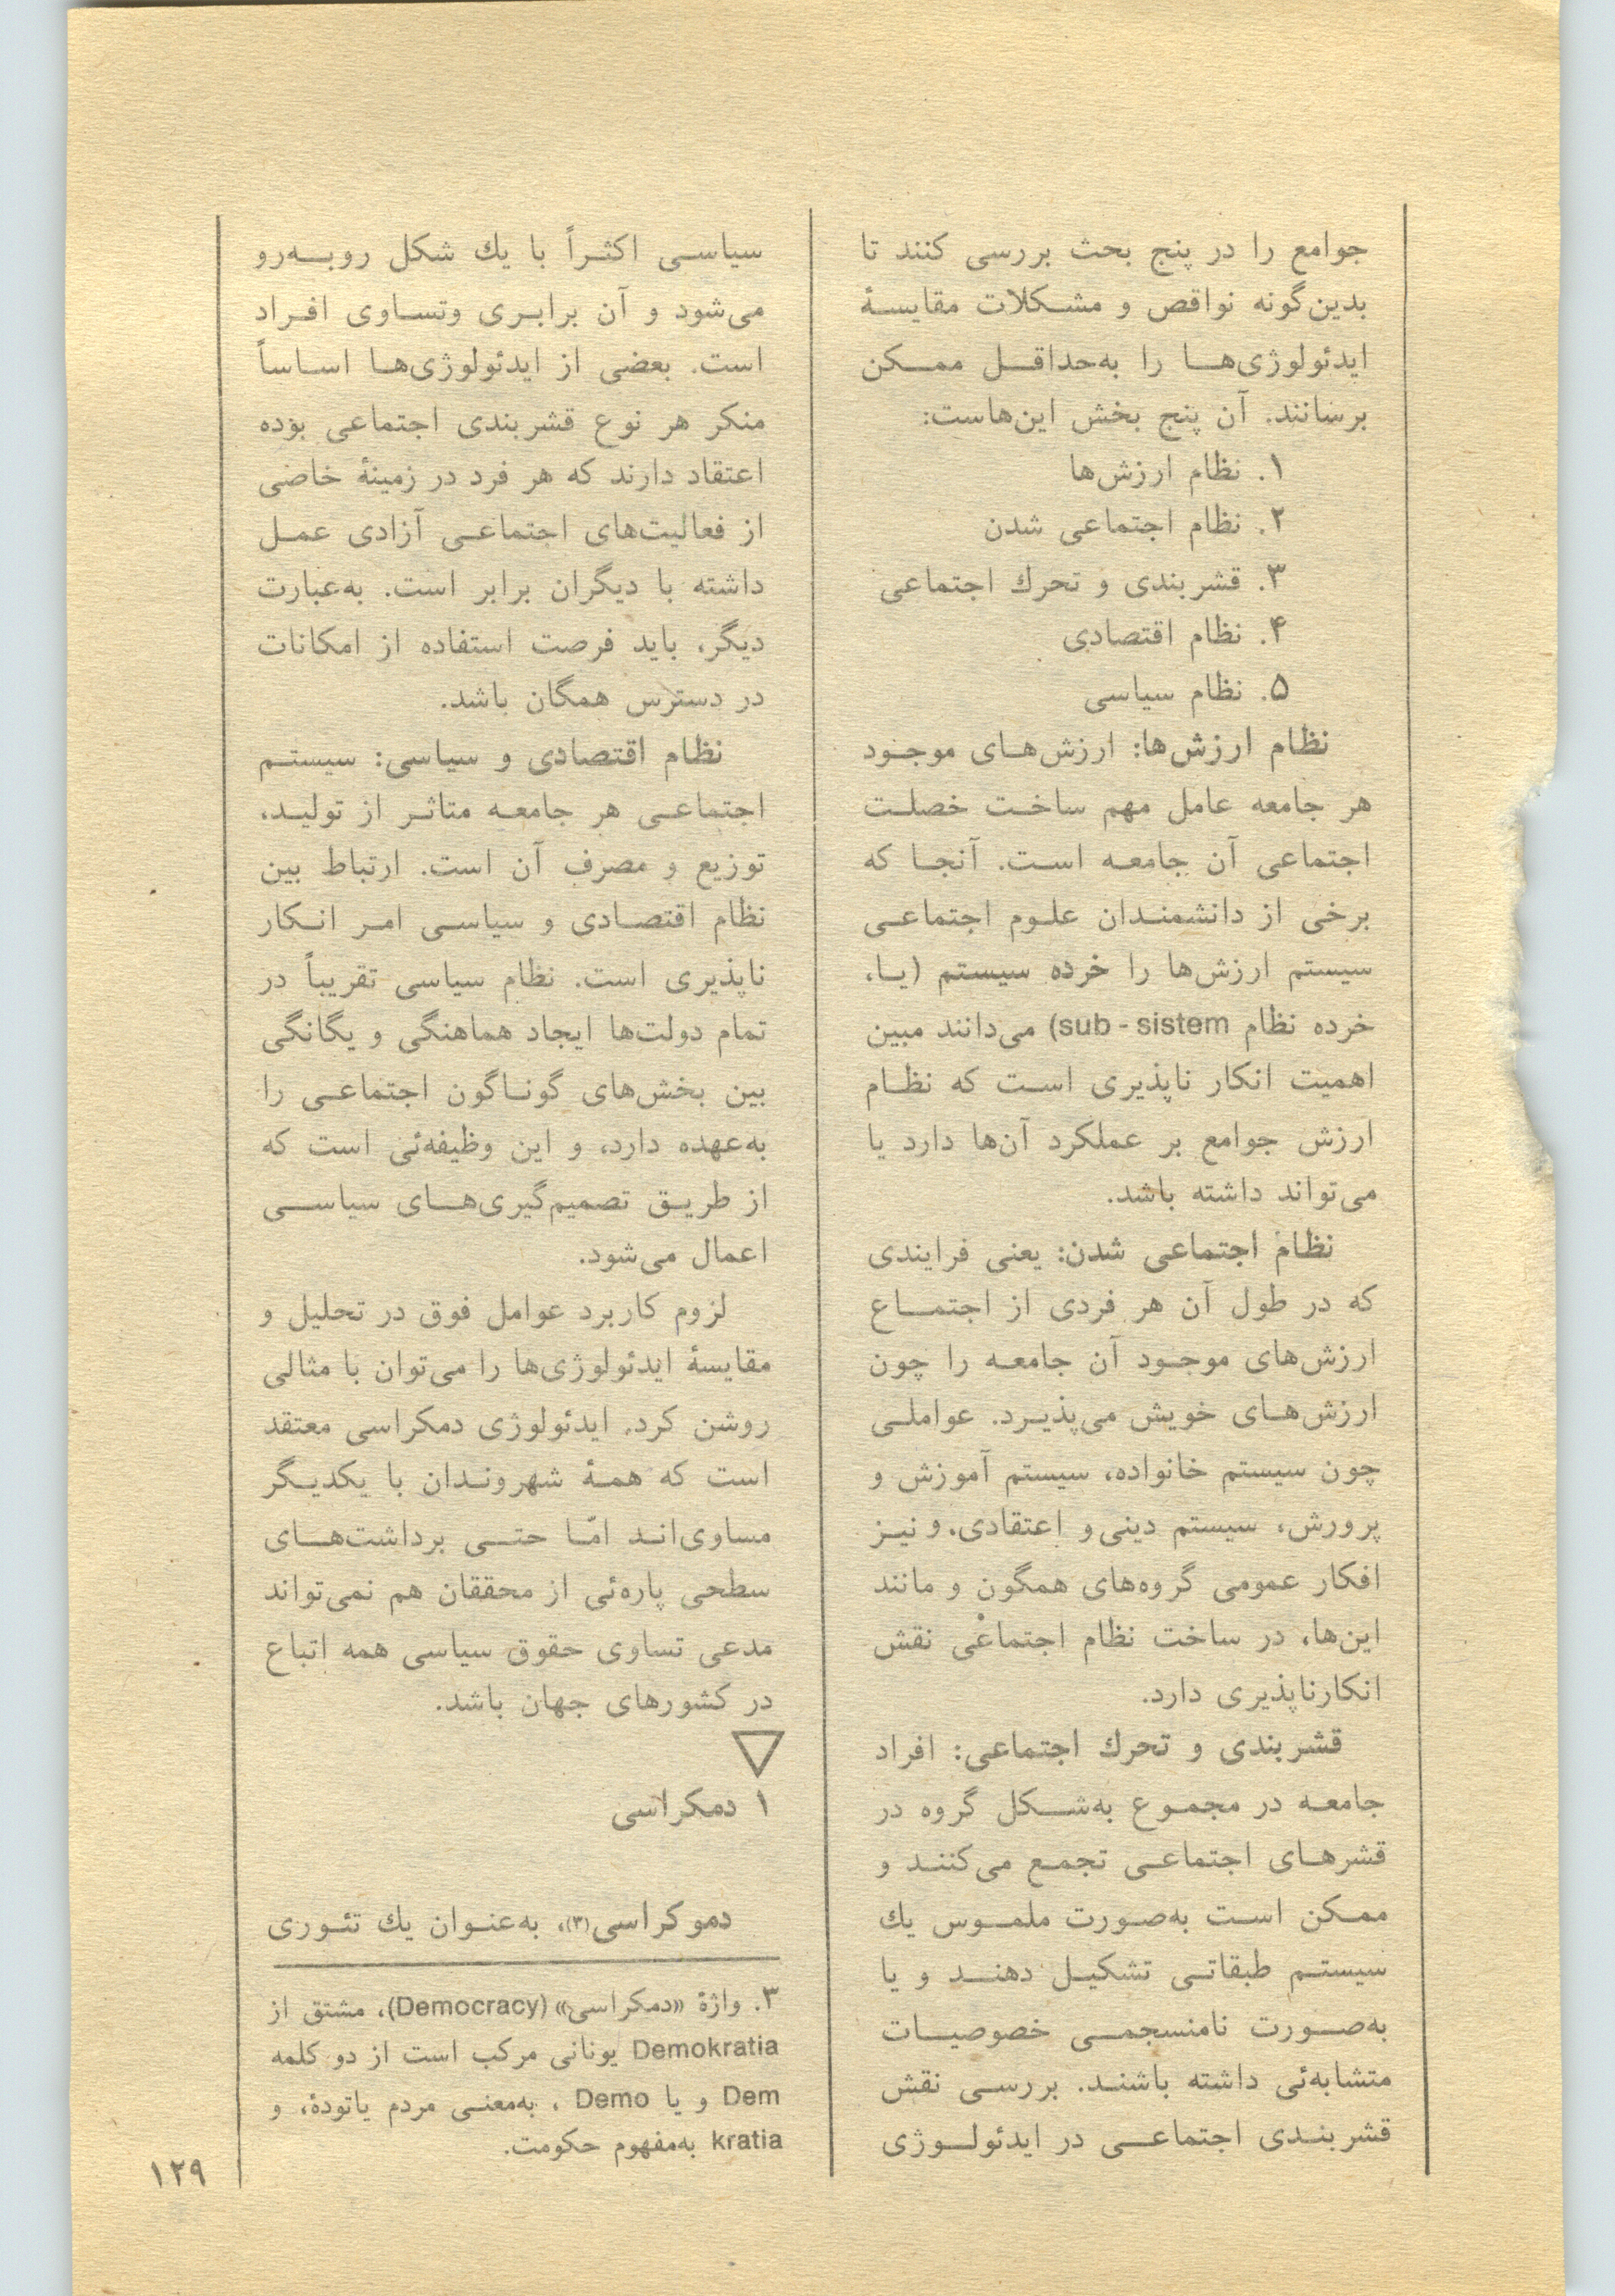 جوامع را در پنج بحث بررسی کنند تا
بدین‌گونه نواقص و مشکلات مقایسهٔ
ایدئولوژی‌ها را به‌حداقل ممکن
برسانند. آن پنج بخش این‌هاست:
۱. نظام ارزش‌ها
۲. نظام اجتماعی شدن
۳. قشربندی و تحرك اجتماعی
۴. نظام اقتصادی
۵. نظام سیاسی
نظام ارزش‌ها: ارزش‌های موجود
هر جامعه عامل مهم ساخت خصلت
اجتماعی آن جامعه است. آنجا که
برخی از دانشمندان علوم اجتماعی
سیستم ارزش‌ها را خرده سیستم (یا،
خرده نظام sub - sistem) می‌دانند مبین
اهمیت انکار ناپذیری است که نظام
ارزش جوامع بر عملکرد آن‌ها دارد یا
می‌تواند داشته باشد.
نظام اجتماعی شدن: یعنی فرایندی
که در طول آن هر فردی از اجتماع
ارزش‌های موجود آن جامعه را چون
ارزش‌های خویش می‌پذیرد. عواملی
چون سیستم خانواده، سیستم آموزش و
پرورش، سیستم دینی و اعتقادی، و نیز
افکار عمومی گروه‌های همگون و مانند
این‌ها، در ساخت نظام اجتماعی نقش
انکارناپذیری دارد.
قشربندی و تحرك اجتماعی: افراد
جامعه در مجموع به‌شکل گروه در
قشرهای اجتماعی تجمع می‌کنند و
ممکن است به‌صورت ملموس یك
سیستم طبقاتی تشکیل دهند و یا
به‌صورت نامنسجمی خصوصیات
متشابه‌ئی داشته باشند. بررسی نقش
قشربندی اجتماعی در ایدئولوژی
سیاسی اکثراً با یك شکل روبه‌رو
می‌شود و آن برابری وتساوی افراد
است. بعضی از ایدئولوژی‌ها اساساً
منکر هر نوع قشربندی اجتماعی بوده
اعتقاد دارند که هر فرد در زمینهٔ خاصی
از فعالیت‌های اجتماعی آزادی عمل
داشته با دیگران برابر است. به‌عبارت
دیگر، باید فرصت استفاده از امکانات
در دسترس همگان باشد.
نظام اقتصادی و سیاسی: سیستم
اجتماعی هر جامعه متاثر از تولید،
توزیع و مصرف آن است. ارتباط بین
نظام اقتصادی و سیاسی امر انکار
ناپذیری است. نظام سیاسی تقریباً در
تمام دولت‌ها ایجاد هماهنگی و یگانگی
بین بخش‌های گوناگون اجتماعی را
به‌عهده دارد، و این وظیفه‌ئی است که
از طریق تصمیم‌گیری‌های سیاسی
اعمال می‌شود.
لزوم کاربرد عوامل فوق در تحلیل و
مقایسهٔ ایدئولوژی‌ها را می‌توان با مثالی
روشن کرد. ایدئولوژی دمکراسی معتقد
است که همهٔ شهروندان با یکدیگر
مساوی‌اند امّا حتی برداشت‌های
سطحی پاره‌ئی از محققان هم نمی‌تواند
مدعی تساوی حقوق سیاسی همه اتباع
در کشورهای جهان باشد.
۱ دمکراسی
دموکراسی(۳)، به‌عنوان یك تئوری
۳. واژهٔ «دمکراسی» (Democracy)، مشتق از
Demokratia یونانی مرکب است از دو کلمه
Dem و یا Demo ، به‌معنی مردم یاتودهٔ، و
kratia به‌مفهوم حکومت.
۱۲۹